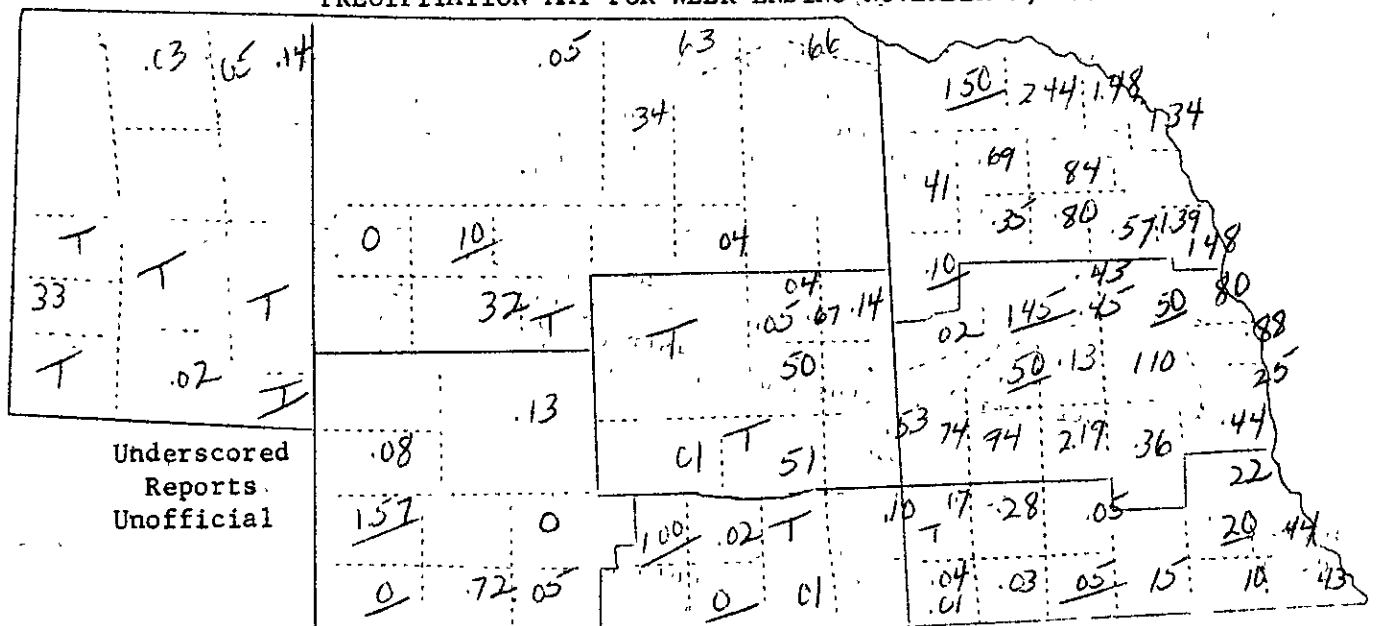 PRECIPITATION MAP FOR WEEK ENDING
.03 .05 .14 .05 63 .66
150 244 1.98 1.34
.34
41 .69 84
.35 .80 .57 1.39 148
T 0 10 04
.10 .43
33 T T 32 T T 04 .05 .67 .14
02 145 .45 50 80
.88
T .02 T 50 .50 .13 110 25
.13
Underscored
Reports
Unofficial
.08 01 T 51 .53 74 94 2.19 .36 .44
22
157 0 100 .02 T .10 T 17 .28 .05 20 .44
0 .72 05 0 01 .04 .01 .03 05 15 10 .43